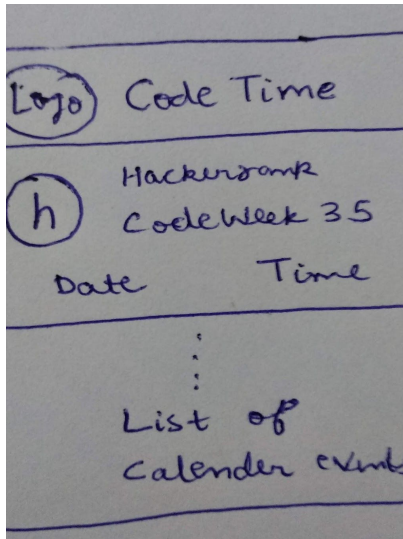 Logo Code Time
Hackerrank
h
CodeWeek 35
Date Time
List of
Calender events